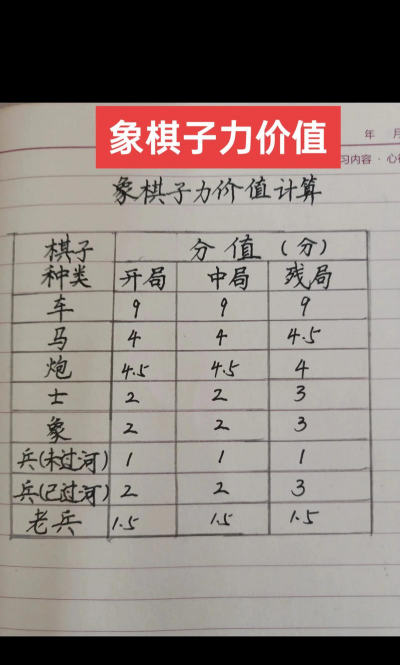 象棋子力价值
年 月
习内容·心
象棋子力价值计算
棋子种类 分值(分)
开局 中局 残局
车 9 9 9
马 4 4 4.5
炮 4.5 4.5 4
士 2 2 3
象 2 2 3
兵(未过河) 1 1 1
兵(已过河) 2 2 3
老兵 1.5 1.5 1.5